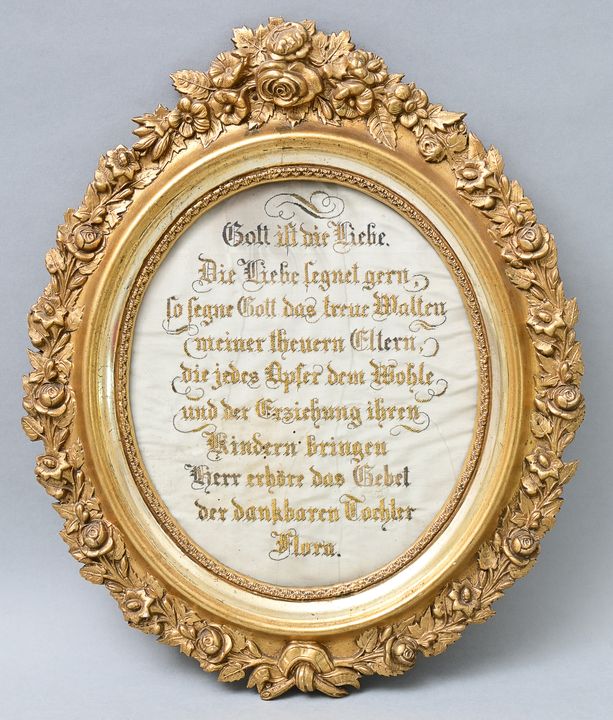 Gott ist die Liebe.
Die Liebe segnet gern,
so segne Gott das treue Walten
meiner theuern Eltern,
die jedes Opfer dem Wohle
und der Erziehung ihren
Kindern bringen
Herr erhöre das Gebet
der dankbaren Tochter
Flora.